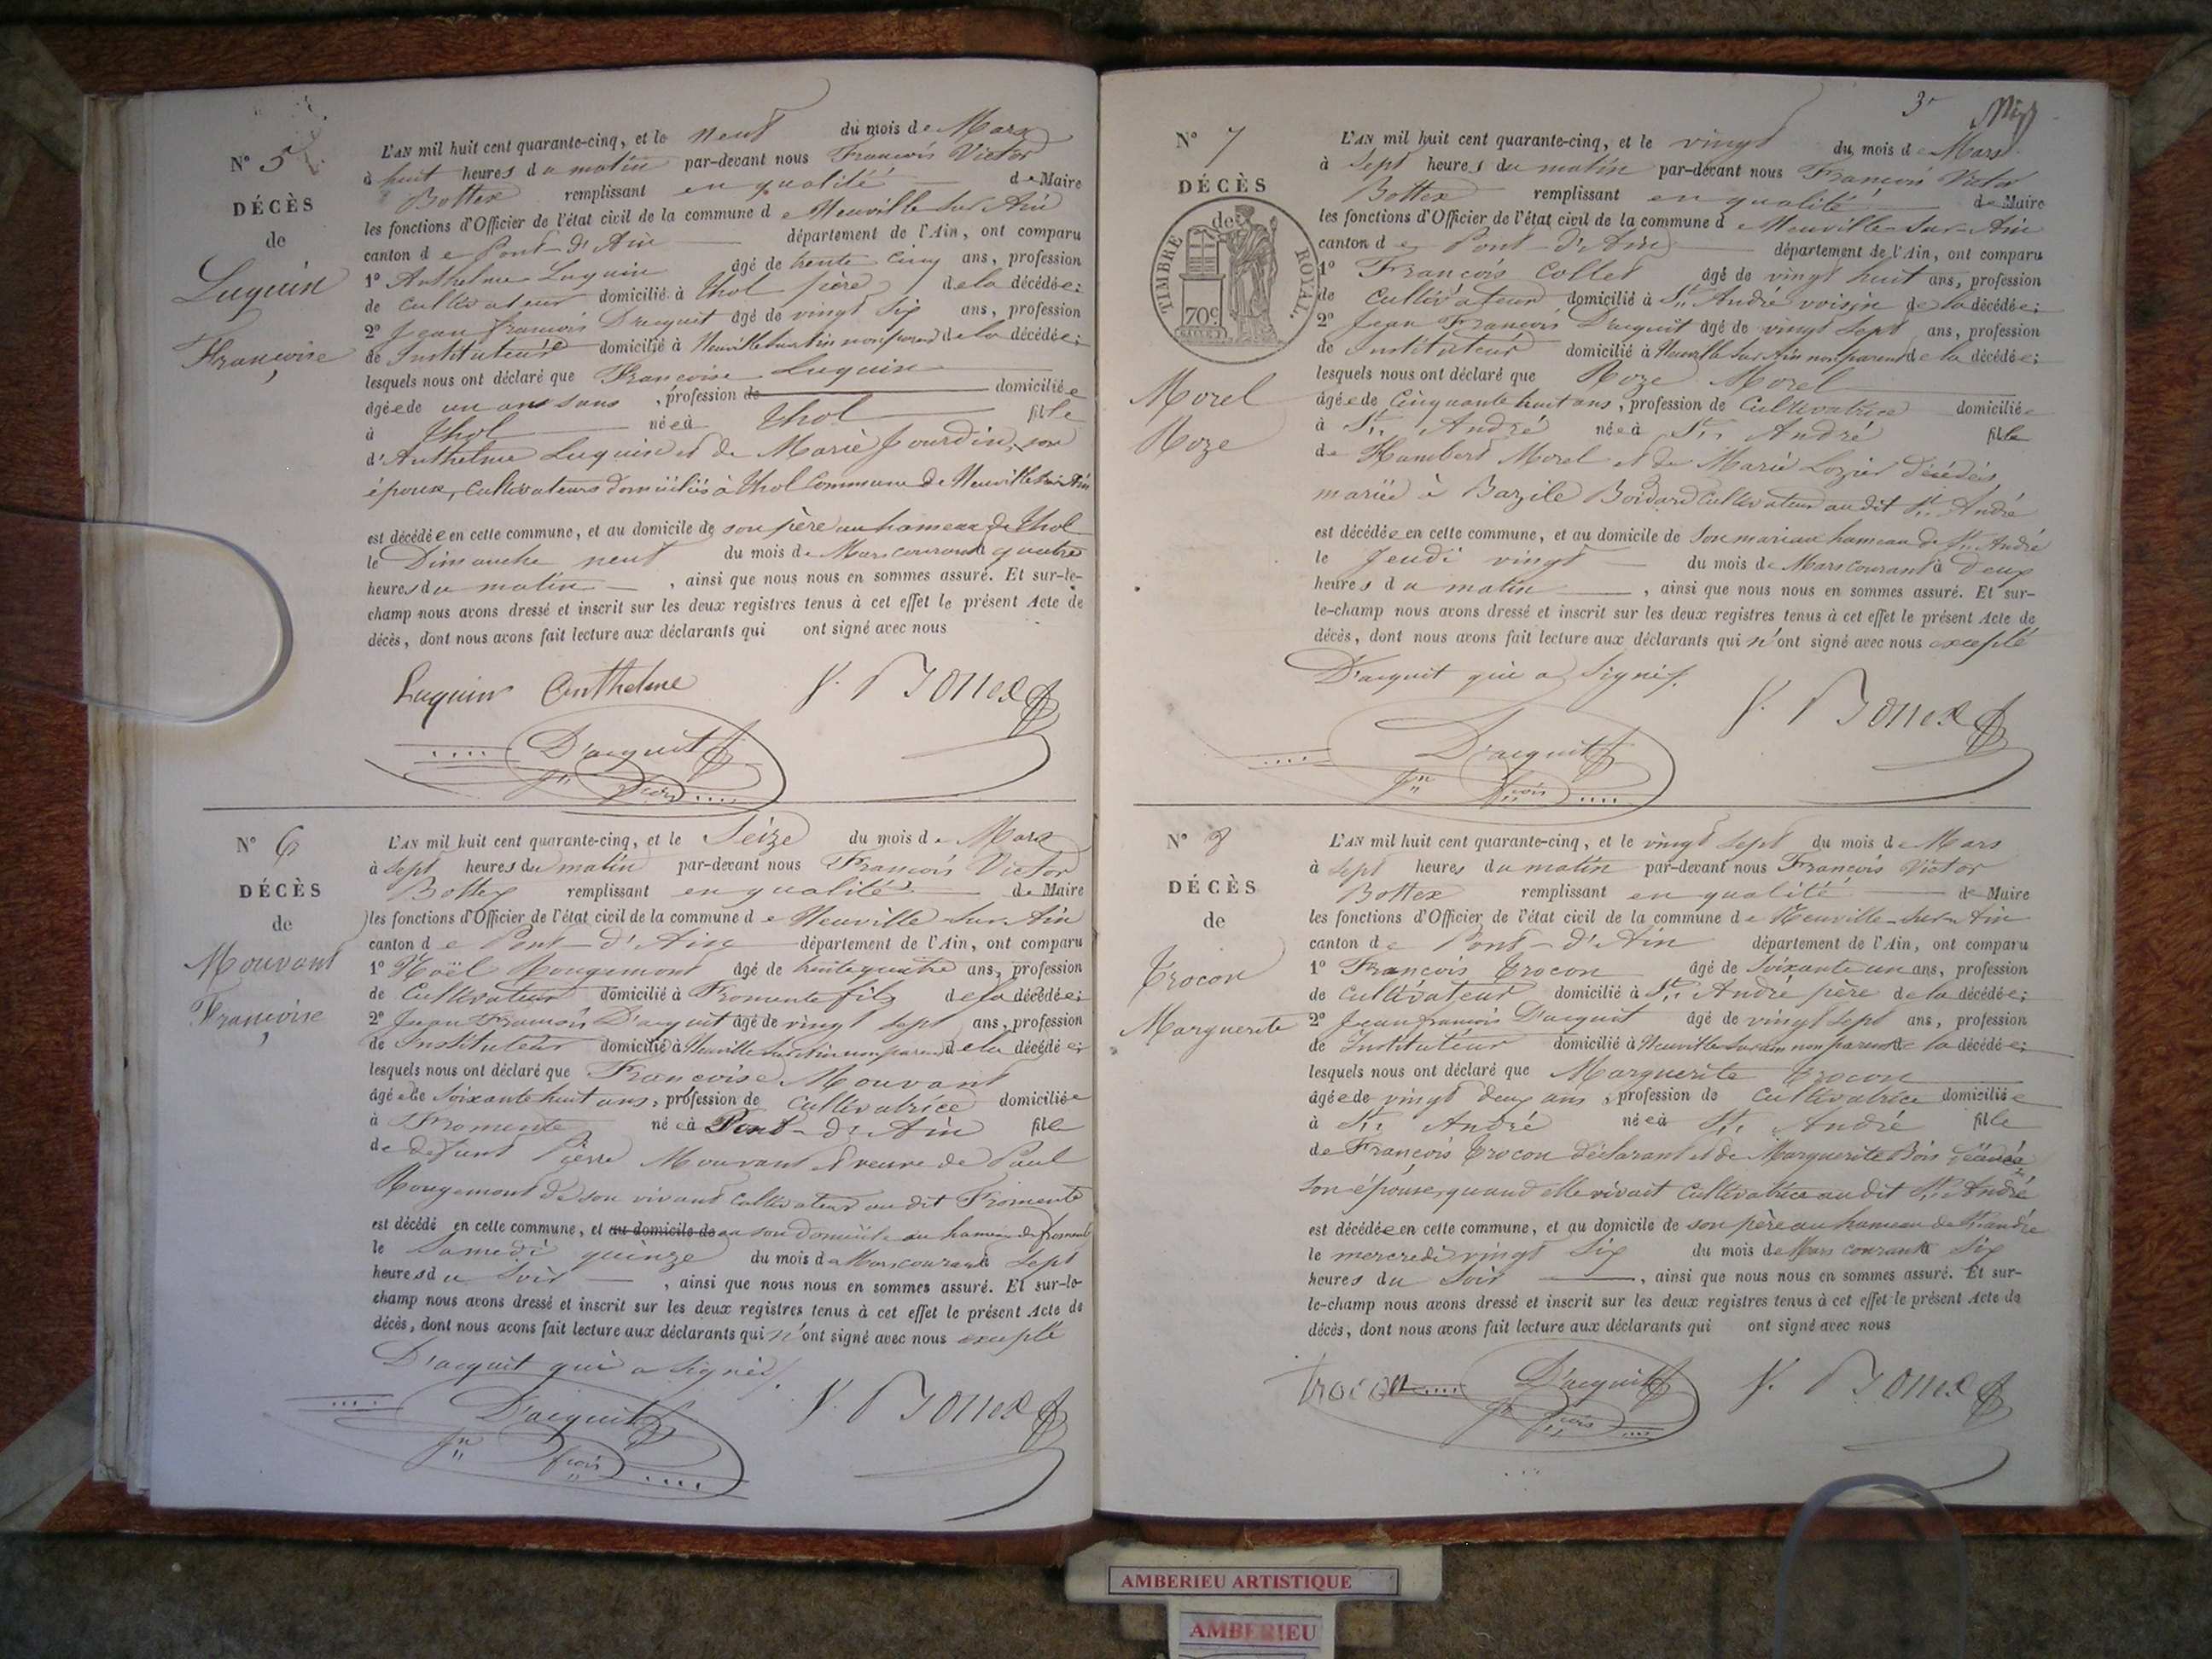 N° 5
DÉCÈS
de
Luquin
Françoise
L'AN mil huit cent quarante-cinq, et le neuf du mois de Mars
à huit heures du matin par-devant nous François Victor
Bottex remplissant en qualité de Maire
les fonctions d'Officier de l'état civil de la commune de Neuville sur Ain
canton de Pont-d'Ain département de l'Ain, ont comparu
1° Anthelme Luquin âgé de trente cinq ans, profession
de cultivateur domicilié à Thol père de la décédée;
2° Jean françois D'acquit âgé de vingt six ans, profession
de Instituteur domicilié à Neuville sur Ain non parent de la décédée;
lesquels nous ont déclaré que Françoise Luquin
âgée de un ans , profession de domiciliée
à Thol née à Thol fille
d'Anthelme Luquin et de Marie Jourdin, son
épouse, cultivateurs domiciliés à Thol Commune de Neuville sur Ain
est décédée en cette commune, et au domicile de son père au hameau de Thol
le Dimanche neuf du mois de Mars courant à quatre
heures du matin , ainsi que nous nous en sommes assuré. Et sur-le-
champ nous avons dressé et inscrit sur les deux registres tenus à cet effet le présent Acte de
décès, dont nous avons fait lecture aux déclarants qui ont signé avec nous
Luquin Anthelme V. Bottex
D'acquit
Jn fçois
N° 6
DÉCÈS
de
Mouvant
Françoise
L'AN mil huit cent quarante-cinq, et le Seize du mois de Mars
à Sept heures du matin par-devant nous François Victor
Bottex remplissant en qualité de Maire
les fonctions d'Officier de l'état civil de la commune de Neuville sur Ain
canton de Pont-d'Ain département de l'Ain, ont comparu
1° Noël Rougemont âgé de trente quatre ans, profession
de Cultivateur domicilié à Fromente fils de la décédée;
2° Jean François D'acquit âgé de vingt sept ans, profession
de Instituteur domicilié à Neuville sur Ain non parent de la décédée;
lesquels nous ont déclaré que Françoise Mouvant
âgée de soixante huit ans, profession de Cultivatrice domiciliée
à Fromente née à Pont-d'Ain fille
de défunt Pierre Mouvant et veuve de Paul
Rougemont de son vivant cultivateur au dit Fromente
est décédé en cette commune, et au domicile de en son domicile au hameau de froment
le Samedi quinze du mois de Mars courant à Sept
heures du Soir , ainsi que nous nous en sommes assuré. Et sur-le-
champ nous avons dressé et inscrit sur les deux registres tenus à cet effet le présent Acte de
décès, dont nous avons fait lecture aux déclarants qui n'ont signé avec nous excepté
D'acquit qui a signé
D'acquit V. Bottex
Jn fçois
3
N° 7
DÉCÈS
de
TIMBRE ROYAL
70c
Morel
Roze
L'AN mil huit cent quarante-cinq, et le vingt du mois de Mars
à Sept heures du matin par-devant nous François Victor
Bottex remplissant en qualité de Maire
les fonctions d'Officier de l'état civil de la commune de Neuville-sur-Ain
canton de Pont-d'Ain département de l'Ain, ont comparu
1° François Collet âgé de vingt huit ans, profession
de Cultivateur domicilié à St. André voisin de la décédée;
2° Jean François D'acquit âgé de vingt sept ans, profession
de Instituteur domicilié à Neuville sur Ain non parent de la décédée;
lesquels nous ont déclaré que Roze Morel
âgée de Cinquante huit ans, profession de Cultivatrice domiciliée
à St. André née à St. André fille
de Humbert Morel et de Marie Lozier décédés,
mariée à Bazile Boidard Cultivateur au dit St. André
est décédée en cette commune, et au domicile de son mari au hameau de St. André
le Jeudi vingt du mois de Mars courant à Deux
heures du matin , ainsi que nous nous en sommes assuré. Et sur-
le-champ nous avons dressé et inscrit sur les deux registres tenus à cet effet le présent Acte de
décès, dont nous avons fait lecture aux déclarants qui n'ont signé avec nous excepté
D'acquit qui a signé
D'acquit V. Bottex
Jn fçois
N° 8
DÉCÈS
de
Trocon
Marguerite
L'AN mil huit cent quarante-cinq, et le vingt Sept du mois de Mars
à Sept heures du matin par-devant nous François Victor
Bottex remplissant en qualité de Maire
les fonctions d'Officier de l'état civil de la commune de Neuville-sur-Ain
canton de Pont-d'Ain département de l'Ain, ont comparu
1° François Trocon âgé de Soixante un ans, profession
de Cultivateur domicilié à St. André père de la décédée;
2° Jean françois D'acquit âgé de vingt sept ans, profession
de Instituteur domicilié à Neuville sur ain non parent de la décédée;
lesquels nous ont déclaré que Marguerite Trocon
âgée de vingt deux ans, profession de Cultivatrice domiciliée
à St. André née à St. André fille
de François Trocon déclarant et de Marguerite Bois
son épouse, quand elle vivait Cultivatrice au dit St. André
est décédée en cette commune, et au domicile de son père au hameau de St. andré
le mercredi vingt Six du mois de Mars courant à Six
heures du Soir , ainsi que nous nous en sommes assuré. Et sur-
le-champ nous avons dressé et inscrit sur les deux registres tenus à cet effet le présent Acte de
décès, dont nous avons fait lecture aux déclarants qui ont signé avec nous
Trocon D'acquit V. Bottex
Jn fçois
AMBERIEU ARTISTIQUE
AMBERIEU